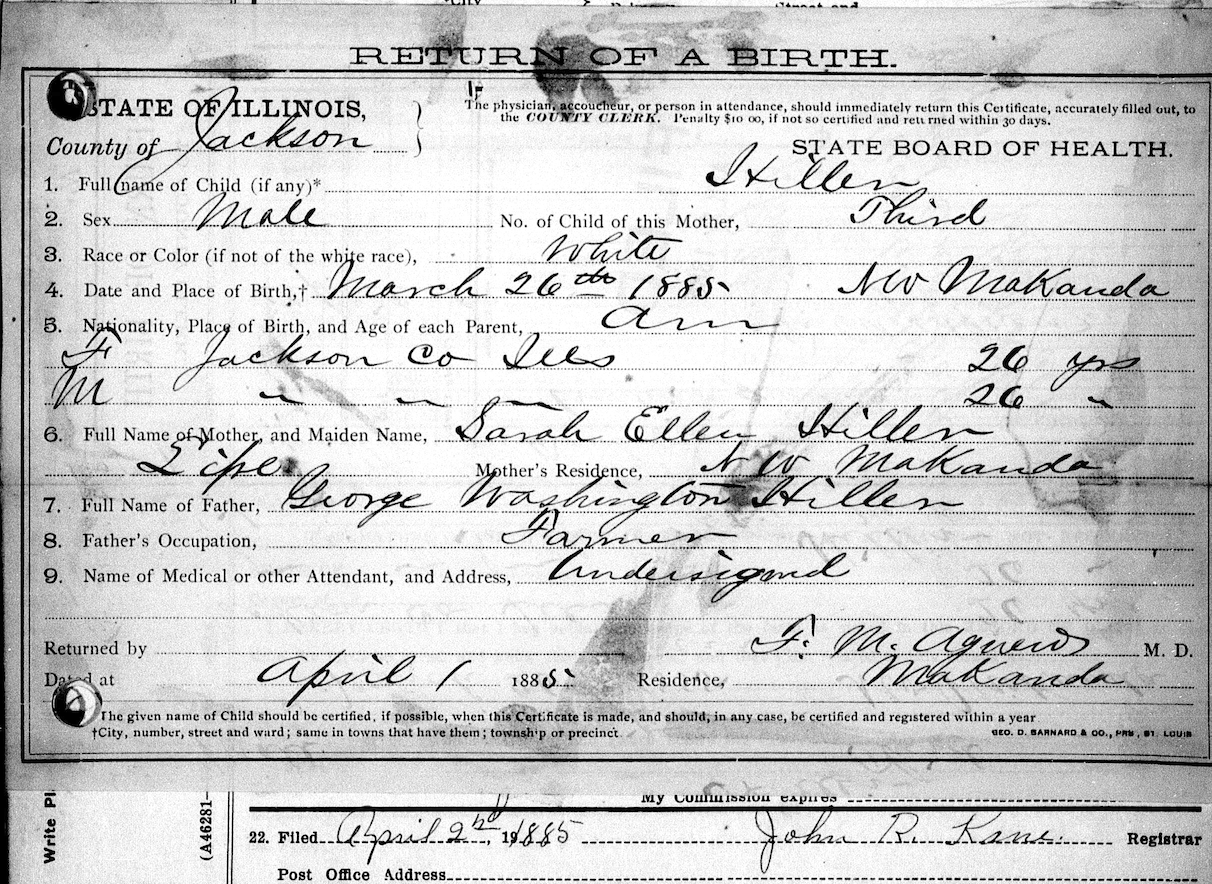 RETURN OF A BIRTH.
STATE OF ILLINOIS,
County of Jackson
The physician, accoucheur, or person in attendance, should immediately return this Certificate, accurately filled out, to
the COUNTY CLERK. Penalty $10 00, if not so certified and returned within 30 days.
STATE BOARD OF HEALTH.
1. Full name of Child (if any)* Hiller
2. Sex Male No. of Child of this Mother, Third
3. Race or Color (if not of the white race), White
4. Date and Place of Birth,† March 26th 1885 NW Makanda
5. Nationality, Place of Birth, and Age of each Parent, Am
F Jackson Co Ills 26 yrs
M " " " 26 "
6. Full Name of Mother, and Maiden Name, Sarah Ellen Hiller
Mother's Residence, N W Makanda
7. Full Name of Father, George Washington Hiller
8. Father's Occupation, Farmer
9. Name of Medical or other Attendant, and Address, Undersigned
Returned by F. M. Agnew M. D.
Dated at April 1 1885 Residence, Makanda
The given name of Child should be certified, if possible, when this Certificate is made, and should, in any case, be certified and registered within a year
†City, number, street and ward; same in towns that have them; township or precinct.
GEO. D. BARNARD & CO., PRS, ST. LOUIS
My Commission expires
Write Pl
(A46281-
22. Filed April 2nd, 1885 John R. Kane. Registrar
Post Office Address